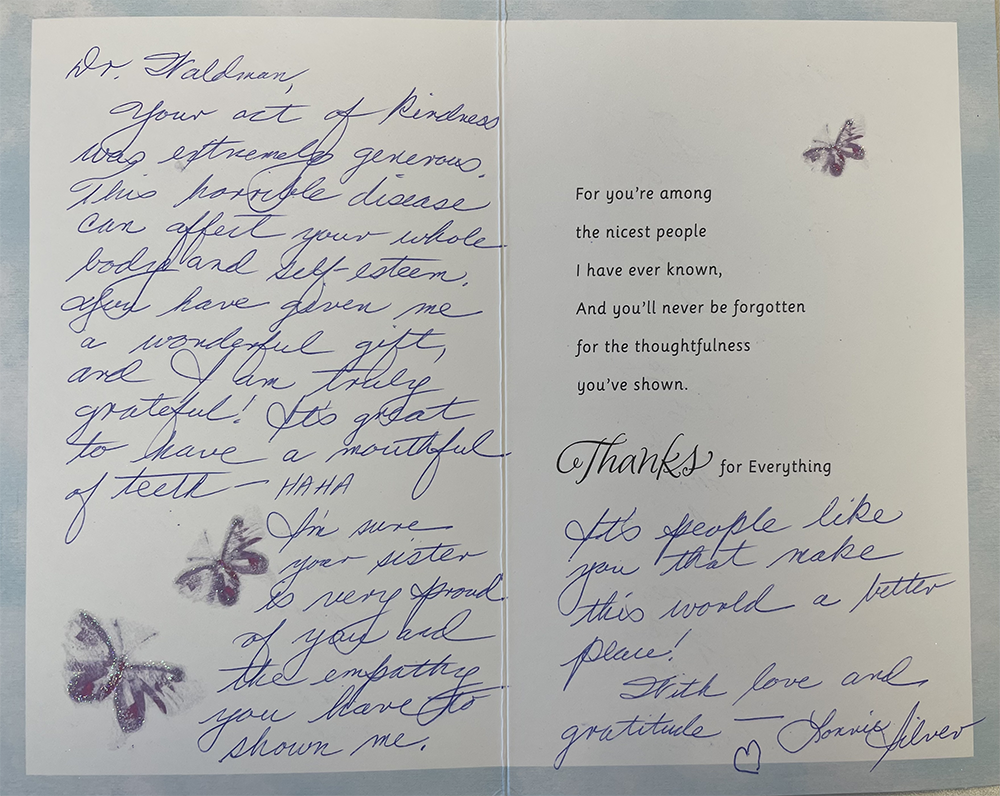 Dr. Waldman,
Your act of kindness
was extremely generous.
This horrible disease
can affect your whole
body and self-esteem.
You have given me
a wonderful gift,
and I am truly
grateful! It's great
to have a mouthful
of teeth — HAHA
I'm sure
your sister
is very proud
of you and
the empathy
you have to
shown me.
For you're among
the nicest people
I have ever known,
And you'll never be forgotten
for the thoughtfulness
you've shown.
Thanks for Everything
It's people like
you that make
this world a better
place!
With love and
gratitude — Lonnie Silver